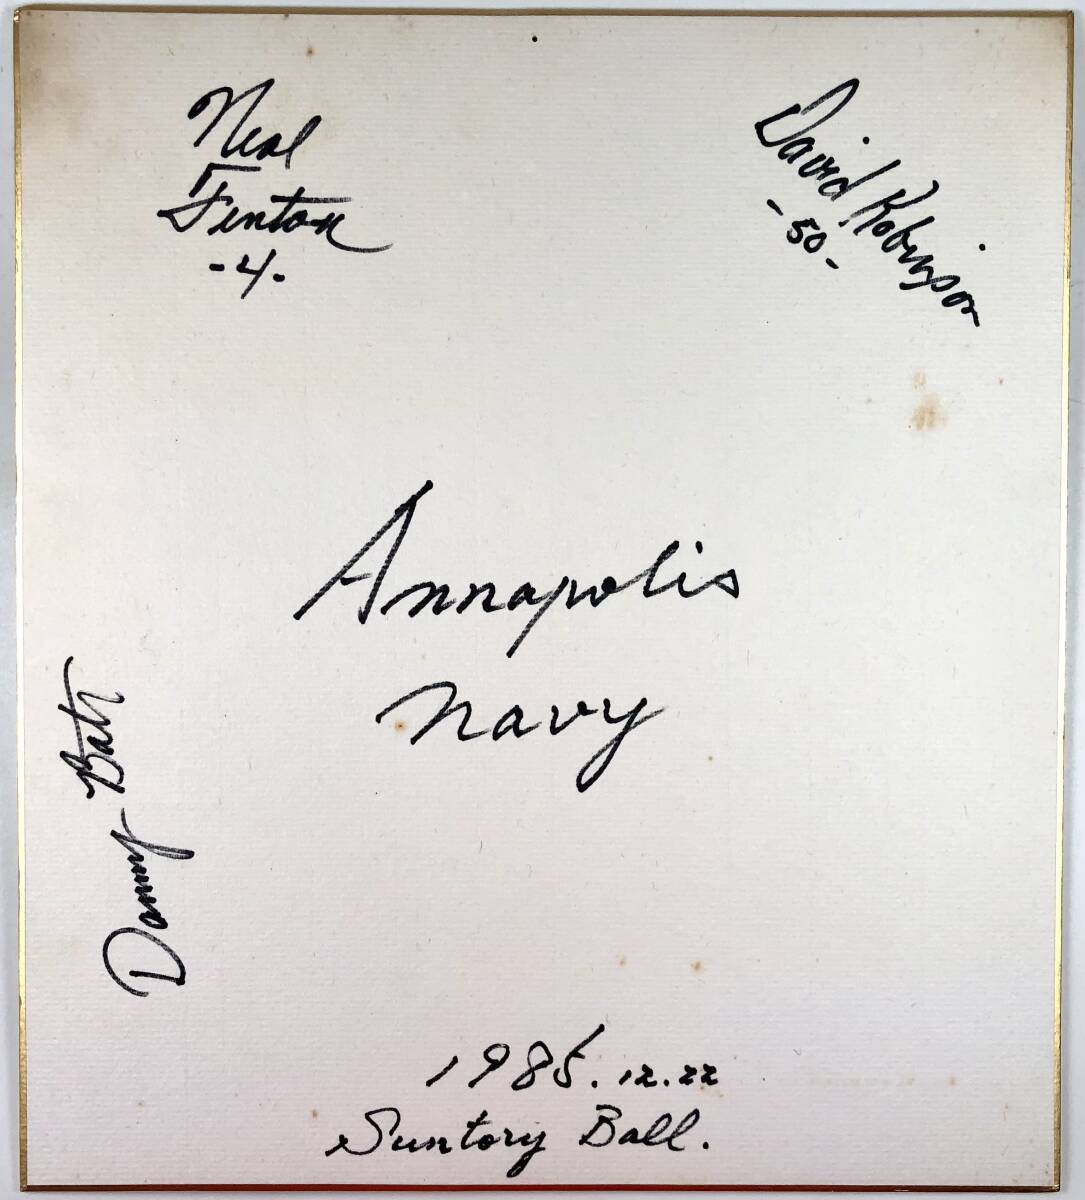 Neal
Fenton
-4-
David Robinson
-50-
Annapolis
navy
Danny Batts
1985.12.22
Suntory Ball.